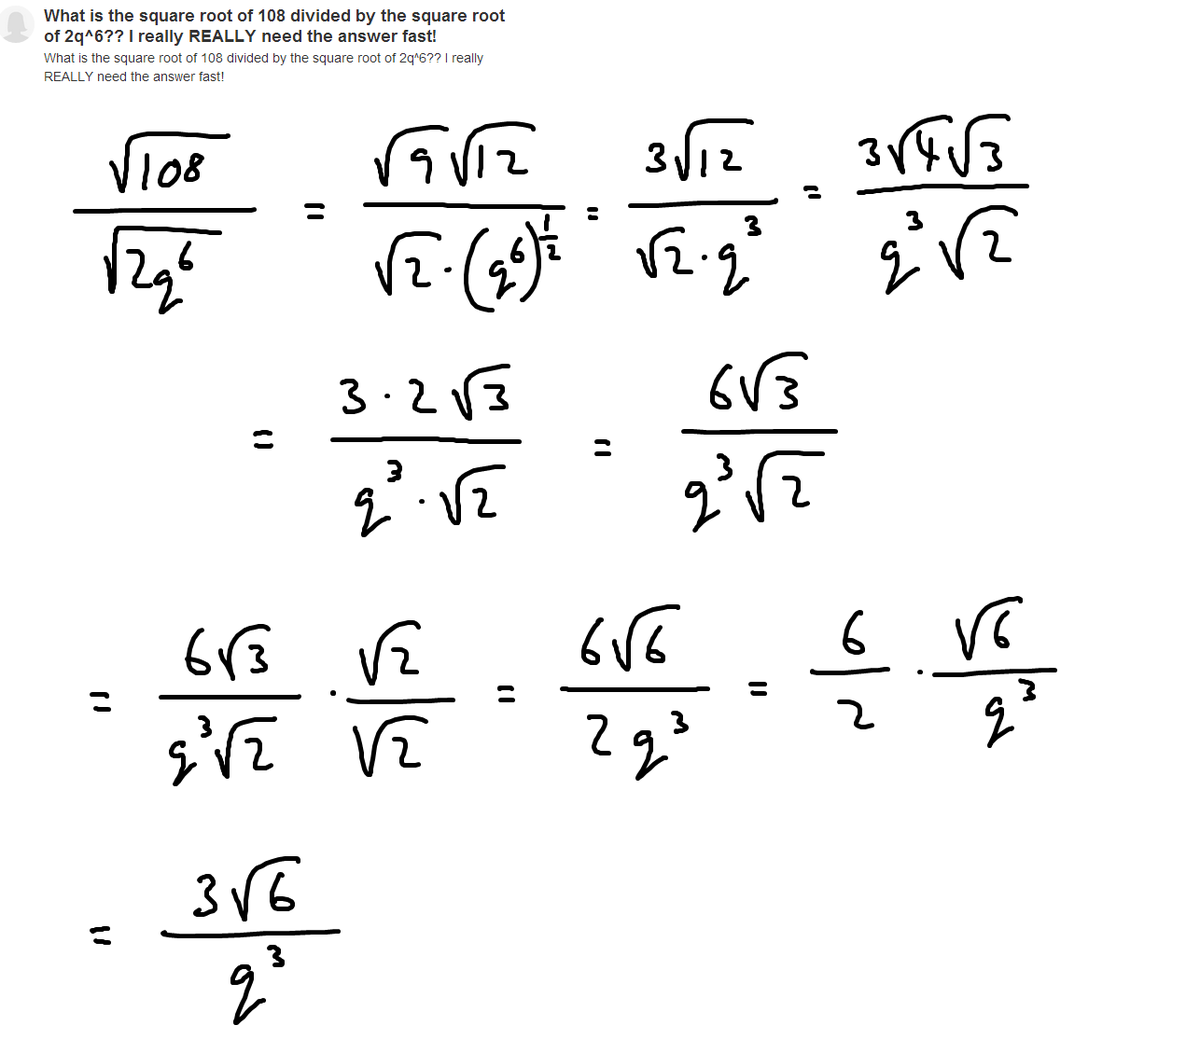 What is the square root of 108 divided by the square root
of 2q^6?? I really REALLY need the answer fast!
What is the square root of 108 divided by the square root of 2q^6?? I really
REALLY need the answer fast!
√108 / √2q⁶ = √9 √12 / √2 · (q⁶)^½ = 3√12 / √2 · q³ = 3√4 √3 / q³ √2
= 3 · 2 √3 / q³ · √2 = 6√3 / q³ √2
= 6√3 / q³ √2 · √2 / √2 = 6√6 / 2q³ = 6 / 2 · √6 / q³
= 3√6 / q³